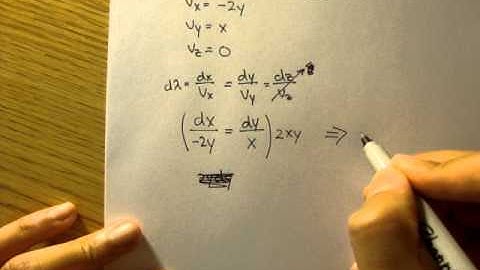 Vx = -2y
Vy = x
Vz = 0
dλ = dx/Vx = dy/Vy = dz/Vz
(dx/-2y = dy/x) 2xy ⇒